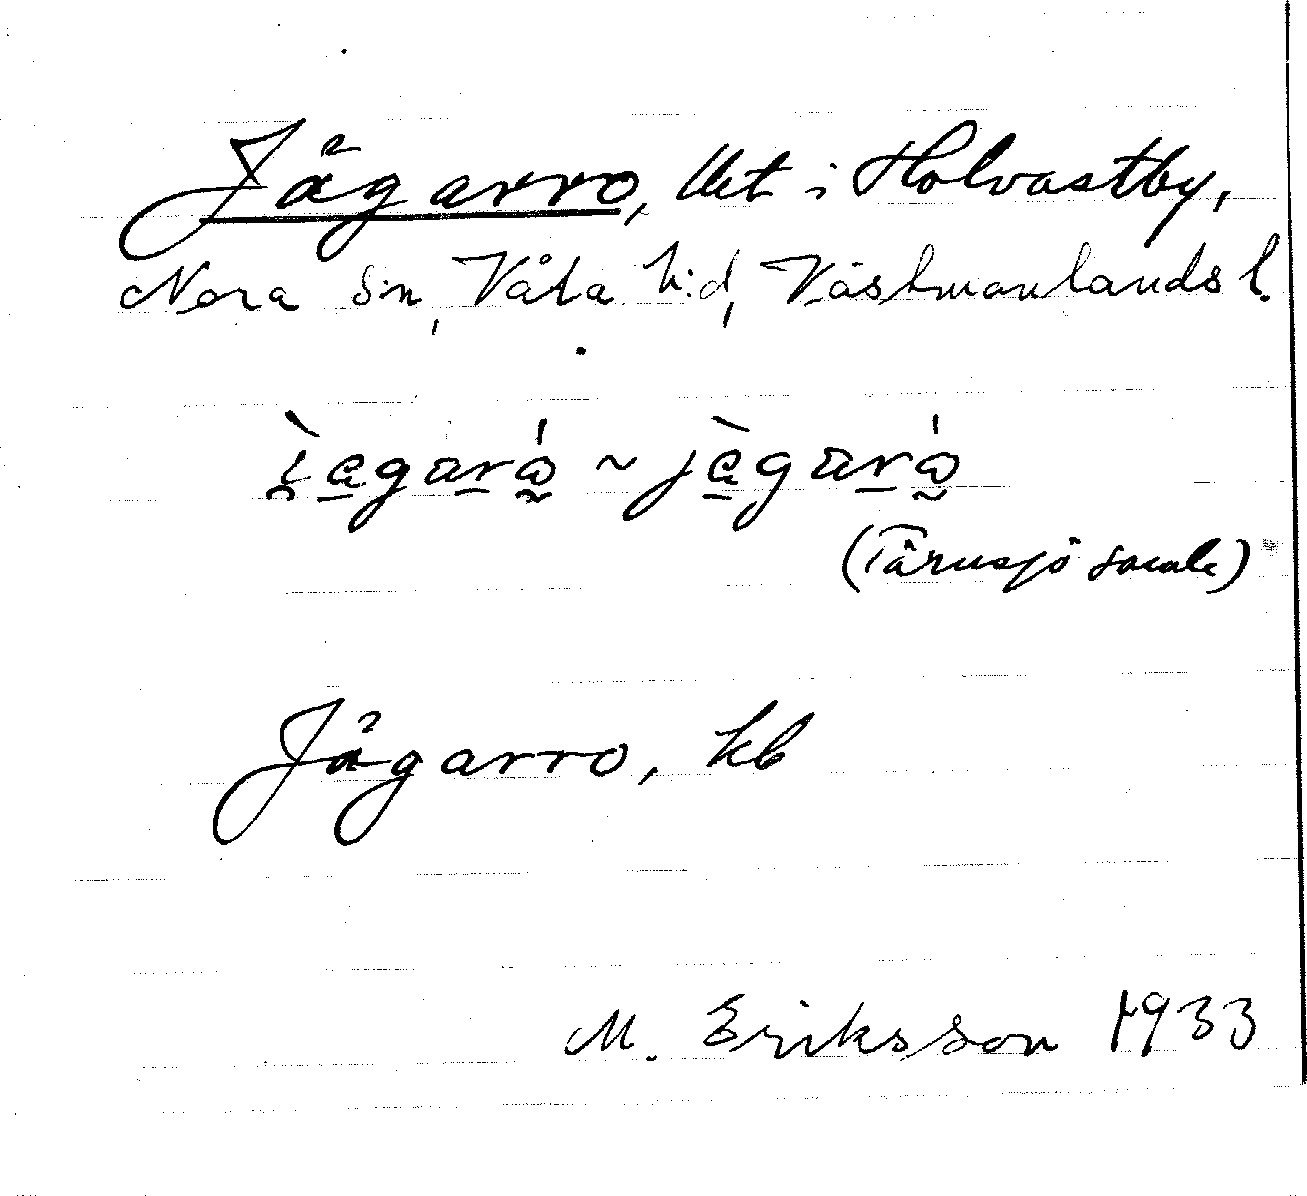 Jågarro, lht i Holvastby,
Nora s:n, Våla h:d, Västmanlands l.
i̯ägarå ~ jägarå
(Tärnsjö samh)
Jågarro, kb
M. Eriksson 1933